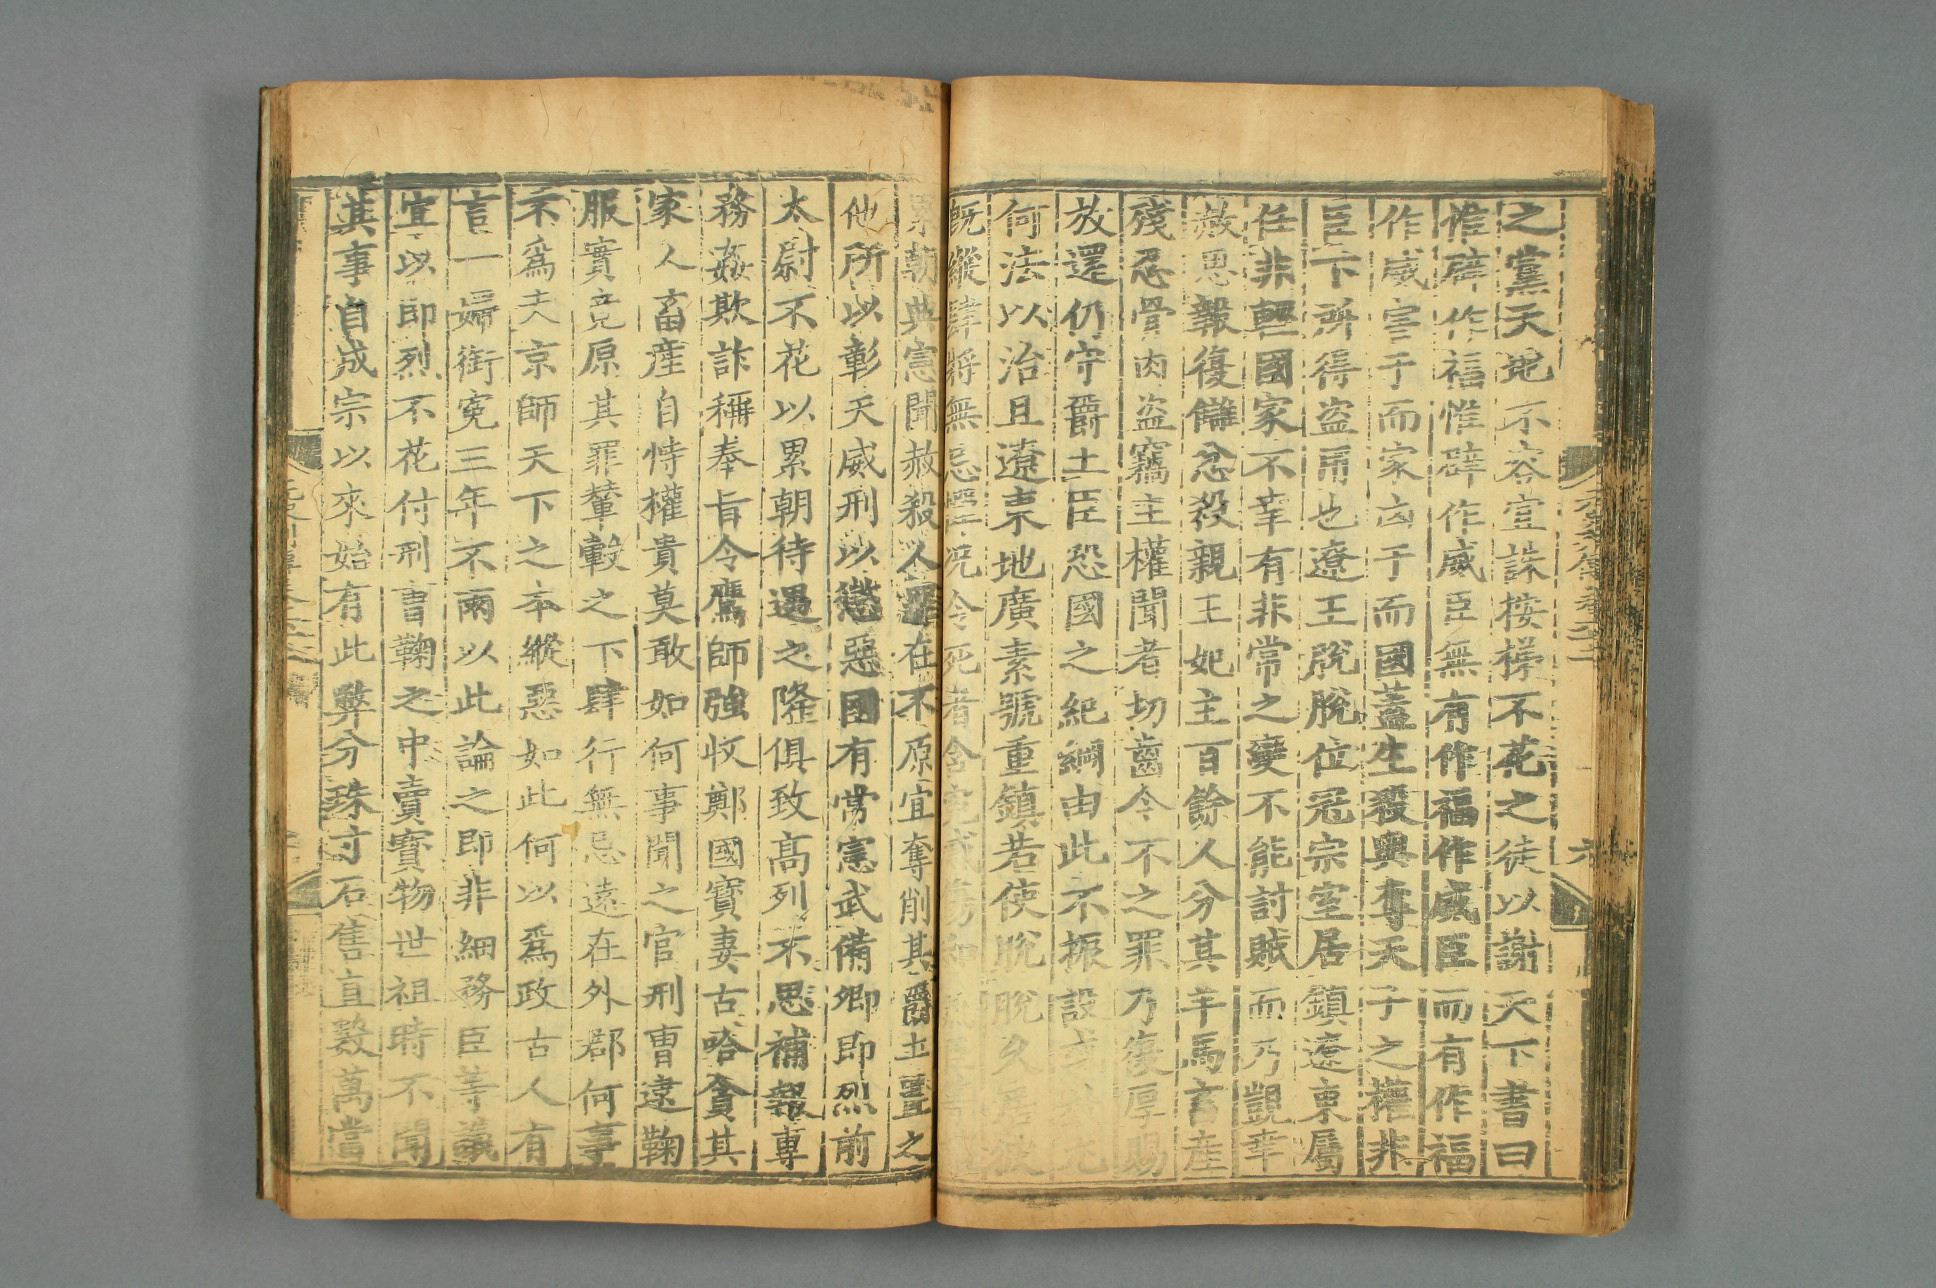 之黨天鬼不容宜誅按梯不花之徒以謝天下書曰
惟辟作福惟辟作威臣無有作福作威臣而有作福
作威害于而家凶于而國蓋生殺與奪天子之權非
臣下所得盜用也遼王脫脫位冠宗室居鎮遼東屬
任非輕國家不幸有非常之變不能討賊而乃覬幸
赦恩報復讎忿殺親王妃主百餘人分其羊馬畜產
殘忍骨肉盜竊主權聞者切齒今不之罪乃復厚賜
放還仍守爵土臣恐國之紀綱由此不振設或
何法以治且遼東地廣素號重鎮若使脫脫久居彼
既縱肆將無忌憚況令死者含冤感傷和
累朝典憲聞赦殺人罪在不原宜奪削其爵土置之
他所以彰天威刑以懲惡國有常憲武備卿即烈前
太尉不花以累朝待遇之隆俱致高列不思補報專
務姦欺詐稱奉旨令鷹師強收鄭國寶妻古哈貪其
家人畜產自恃權貴莫敢如何事聞之官刑曹逮鞫
服實竟原其罪輦轂之下肆行無忌遠在外郡何事
不爲夫京師天下之本縱惡如此何以爲政古人有
言一婦銜冤三年不雨以此論之即非細務臣等議
宜以即烈不花付刑曹鞫之中賣寶物世祖時不聞
其事自成宗以來始有此弊分珠寸石售直數萬當